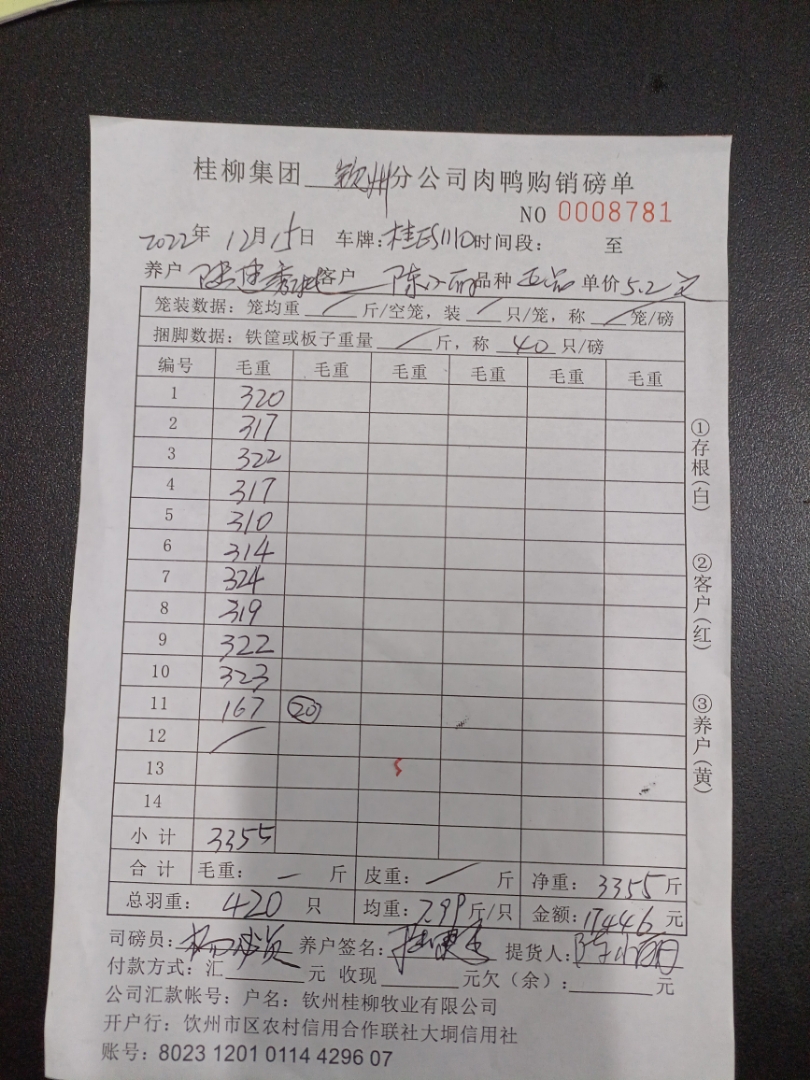 桂柳集团 钦州分公司肉鸭购销磅单
NO 0008781
2022年 12月15日 车牌: 时间段: 至
养户 客户 陈小 品种 正品 单价 5.2元
笼装数据: 笼均重 / 斤/空笼, 装 / 只/笼, 称 / 笼/磅
捆脚数据: 铁筐或板子重量 / 斤, 称 40 只/磅
编号 毛重 毛重 毛重 毛重 毛重 毛重
1 320
2 317
3 322
4 317
5 310
6 314
7 324
8 319
9 322
10 323
11 167 20
12 /
13
14
小计 3355
合计 毛重: — 斤 皮重: / 斤 净重: 3355斤
总羽重: 420 只 均重: 7.99斤/只 金额: 17446元
司磅员: 养户签名: 提货人:
付款方式: 汇 元 收现 元欠(余): 元
公司汇款帐号: 户名: 钦州桂柳牧业有限公司
开户行: 饮州市区农村信用合作联社大垌信用社
账号: 8023 1201 0114 4296 07
①存根(白)
②客户(红)
③养户(黄)